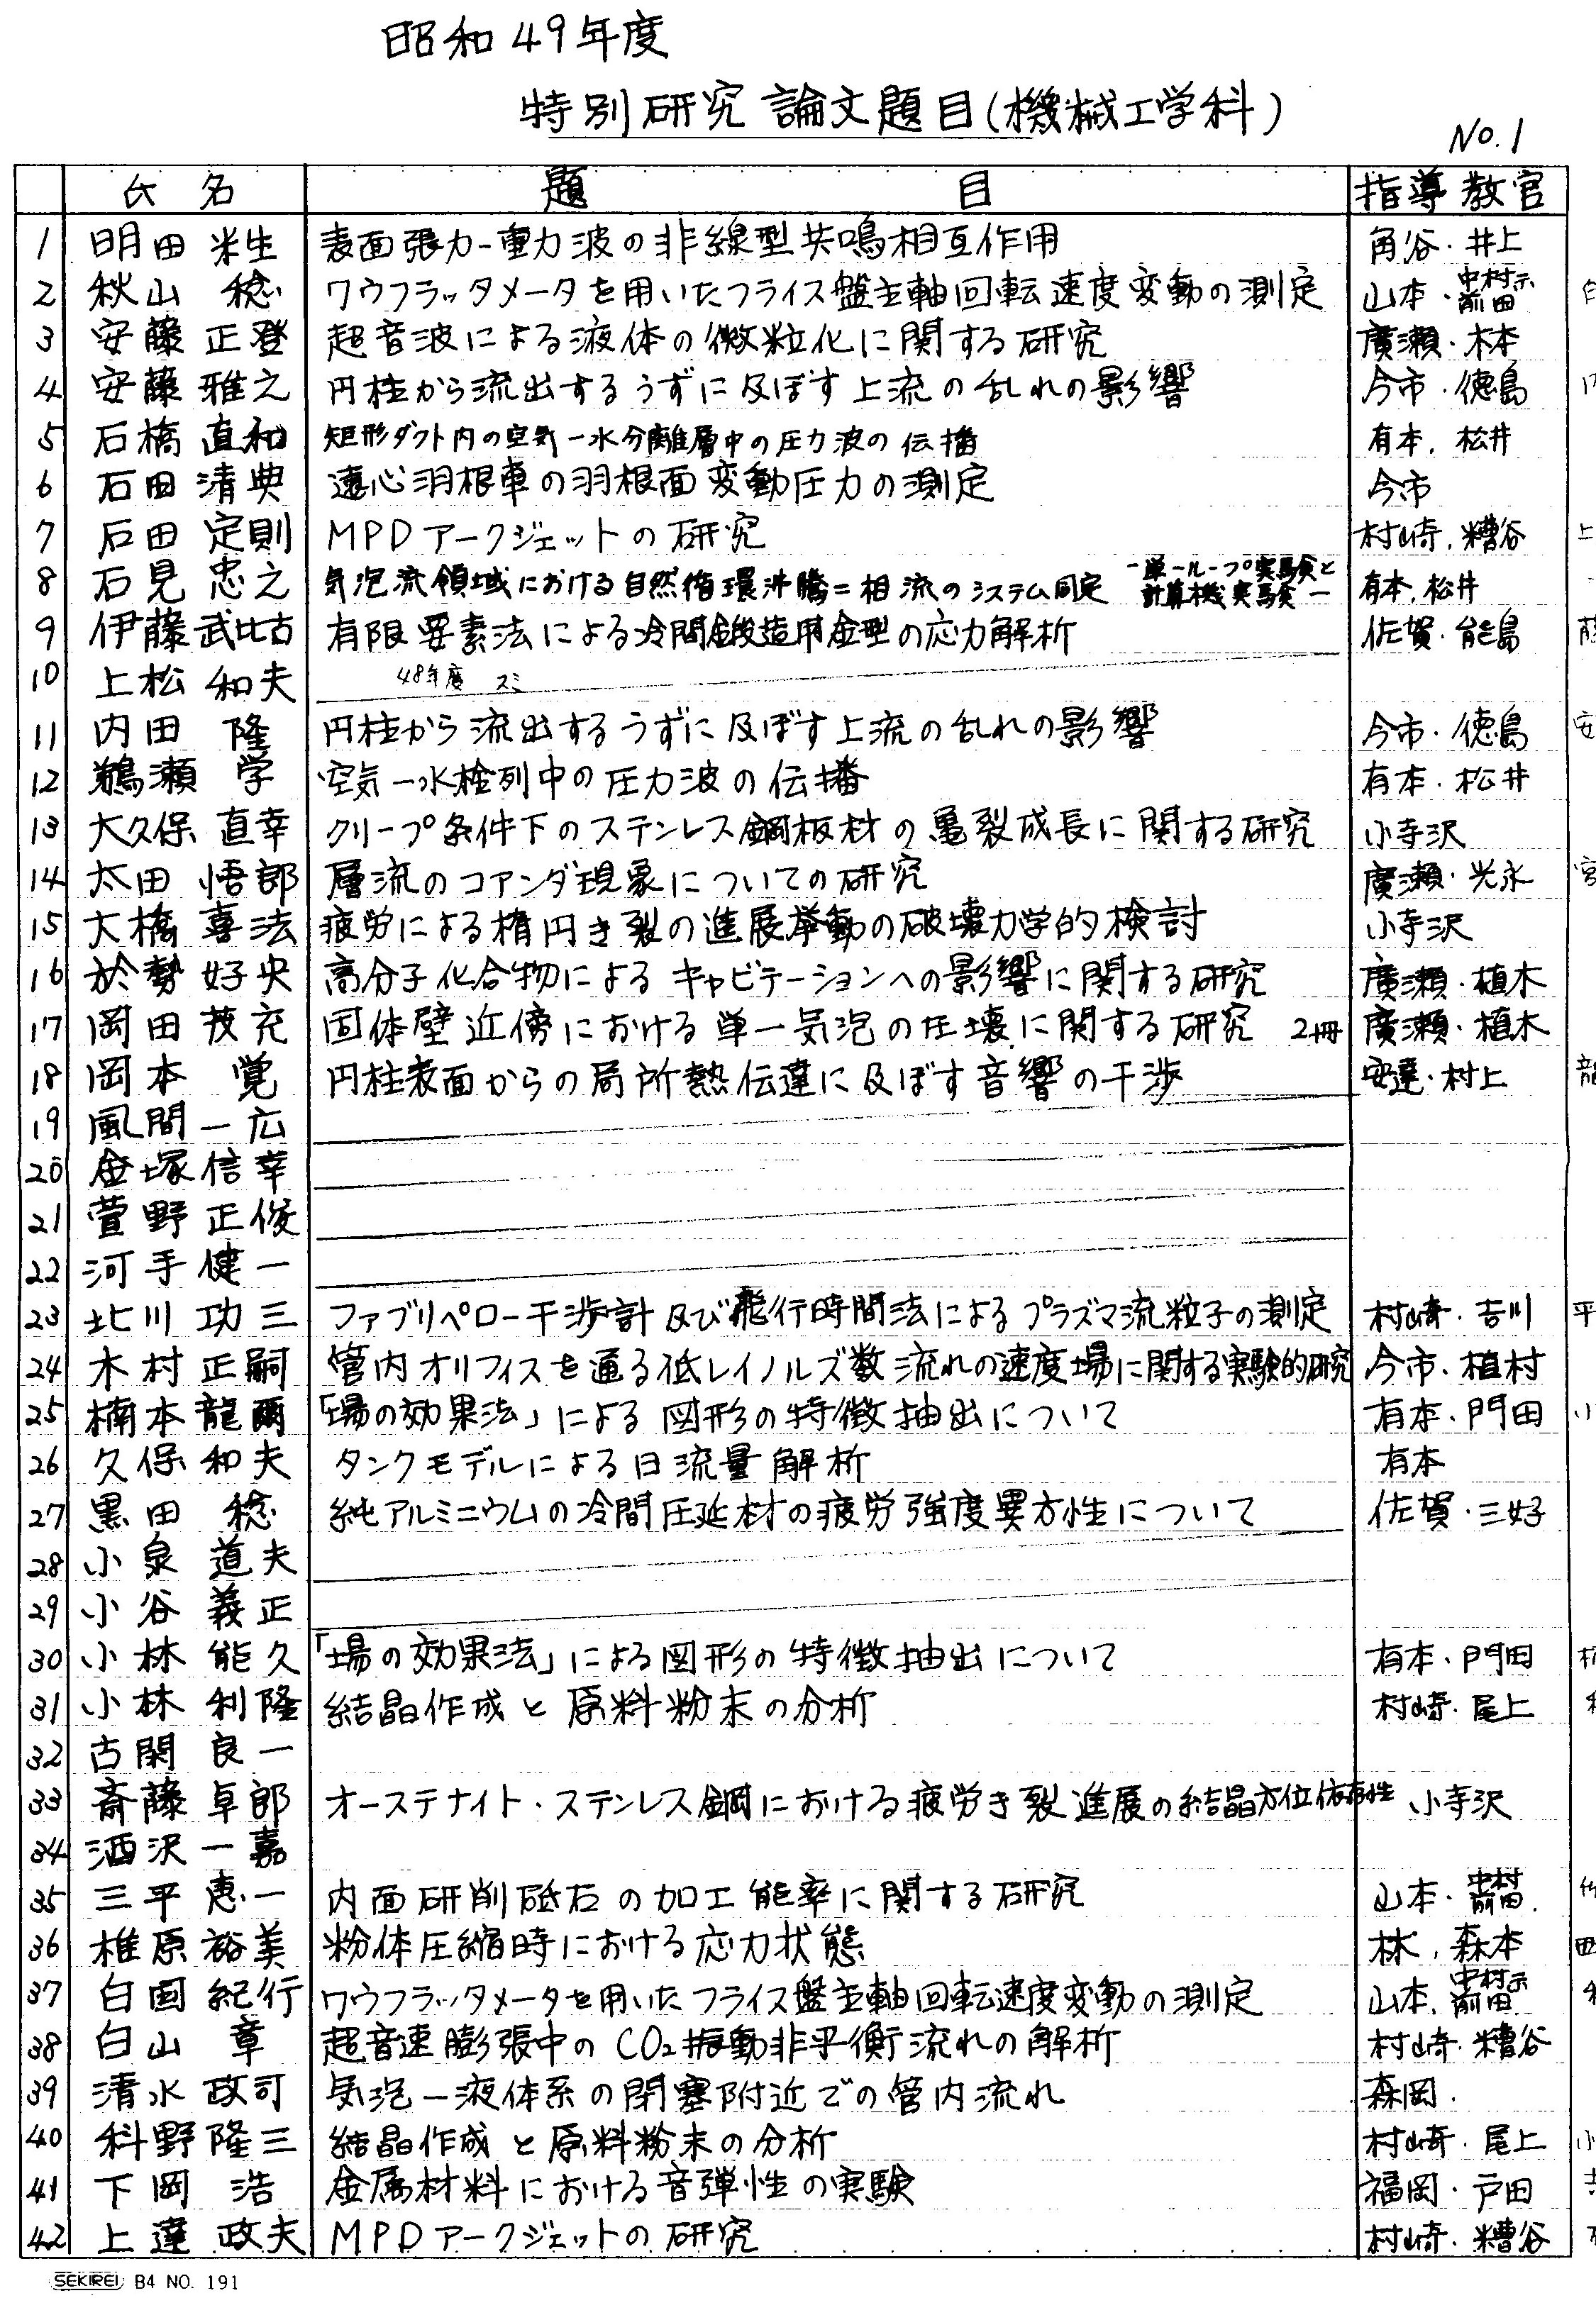 昭和49年度
特別研究論文題目(機械工学科)
No.1
氏名 題目 指導教官
1 明田 米生 表面張力-重力波の非線型共鳴相互作用 角谷・井上
2 秋山 稔 ワウフラッタメータを用いたフライス盤主軸回転速度変動の測定 山本・中村示 前田
3 安藤 正登 超音波による液体の微粒化に関する研究 廣瀬・木本
4 安藤 雅之 円柱から流出するうずに及ぼす上流の乱れの影響 今市・徳島
5 石橋 直和 矩形ダクト内の空気-水分離層中の圧力波の伝播 有本, 松井
6 石田 清典 遠心羽根車の羽根面変動圧力の測定 今市
7 石田 定則 MPDアークジェットの研究 村崎, 糟谷
8 石見 忠之 気泡流領域における自然循環沸騰二相流のシステム同定 -単一ループ実験と計算機実験- 有本, 松井
9 伊藤 武比古 有限要素法による冷間鍛造用金型の応力解析 佐賀・能島
10 上松 和夫 48年度 スミ
11 内田 隆 円柱から流出するうずに及ぼす上流の乱れの影響 今市・徳島
12 鵜瀬 学 空気-水栓列中の圧力波の伝播 有本・松井
13 大久保 直幸 クリープ条件下のステンレス鋼板材の亀裂成長に関する研究 小寺沢
14 太田 悟郎 層流のコアンダ現象についての研究 廣瀬・光永
15 大橋 喜法 疲労による楕円き裂の進展挙動の破壊力学的検討 小寺沢
16 於勢 好央 高分子化合物によるキャビテーションへの影響に関する研究 廣瀬・植木
17 岡田 茂充 固体壁近傍における単一気泡の圧壊に関する研究 2冊 廣瀬・植木
18 岡本 覚 円柱表面からの局所熱伝達に及ぼす音響の干渉 安達・村上
19 風間 一広
20 金塚 信幸
21 萱野 正俊
22 河手 健一
23 北川 功三 ファブリペロー干渉計及び飛行時間法によるプラズマ流粒子の測定 村崎・吉川
24 木村 正嗣 管内オリフィスを通る低レイノルズ数流れの速度場に関する実験的研究 今市・植村
25 楠本 龍爾 「場の効果法」による図形の特徴抽出について 有本・門田
26 久保 和夫 タンクモデルによる日流量解析 有本
27 黒田 稔 純アルミニウムの冷間圧延材の疲労強度異方性について 佐賀・三好
28 小泉 道夫
29 小谷 義正
30 小林 能久 「場の効果法」による図形の特徴抽出について 有本・門田
31 小林 利隆 結晶作成と原料粉末の分析 村崎・尾上
32 古閑 良一
33 斎藤 卓郎 オーステナイト・ステンレス鋼における疲労き裂進展の結晶方位依存性 小寺沢
34 酒沢 一嘉
35 三平 恵一 内面研削砥石の加工能率に関する研究 山本・中村 前田
36 椎原 裕美 粉体圧縮時における応力状態 林, 森本
37 白国 紀行 ワウフラッタメータを用いたフライス盤主軸回転速度変動の測定 山本, 中村示 前田
38 白山 章 超音速膨張中のCO₂振動非平衡流れの解析 村崎・糟谷
39 清水 政司 気泡-液体系の閉塞附近での管内流れ 森岡
40 科野 隆三 結晶作成と原料粉末の分析 村崎・尾上
41 下岡 浩 金属材料における音弾性の実験 福岡・戸田
42 上達 政夫 MPDアークジェットの研究 村崎・糟谷
SEKIREI B4 NO. 191